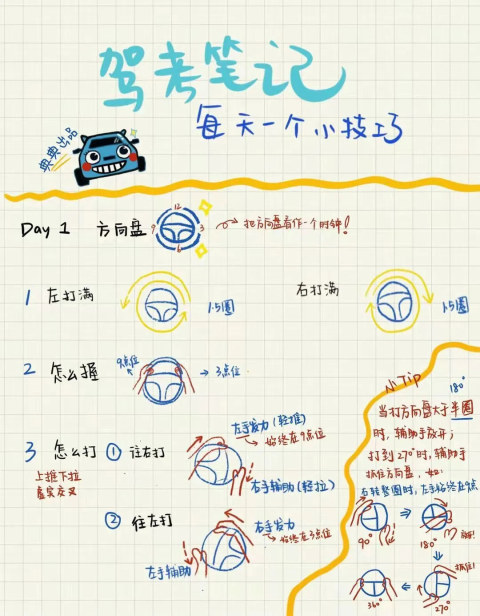 驾考笔记
每天一个小技巧
典典出品
Day 1 方向盘
12
9 3
6
把方向盘看作一个时钟！
1 左打满 1.5圈
右打满 1.5圈
2 怎么握
9点位
3点位
3 怎么打
上推下拉
① 往右打
左手发力（轻推）
始终在9点位
右手辅助（轻拉）
② 往左打
右手发力
始终在3点位
左手辅助
小Tip
180°
当打方向盘大于半圈
时，辅助手放开；
打到270°时，辅助手
抓住方向盘，如：
右转整圈时，左手始终在9点
90°
180°
抓住！
360°
270°